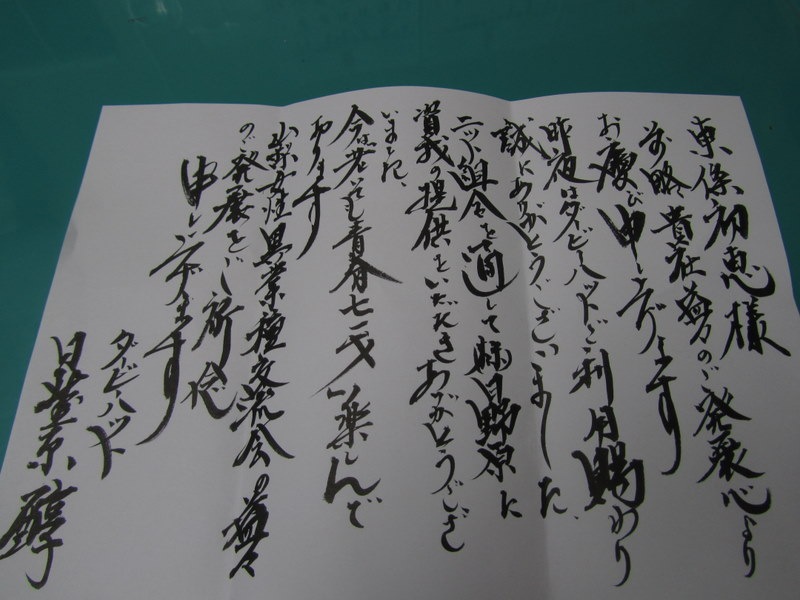 東條初恵様
前略貴社益々のご発展心より
お慶び申し上げます
昨夜はダービーハットご利用賜わり
誠にありがとうございました、
組合を通して
資我の提供をいただきありがとうござ
いました、
今は老いても青春七一才楽しんで
おります
山梨女性異業種交流会の益々
のご発展をご祈念
申し上げます
ダービーハット